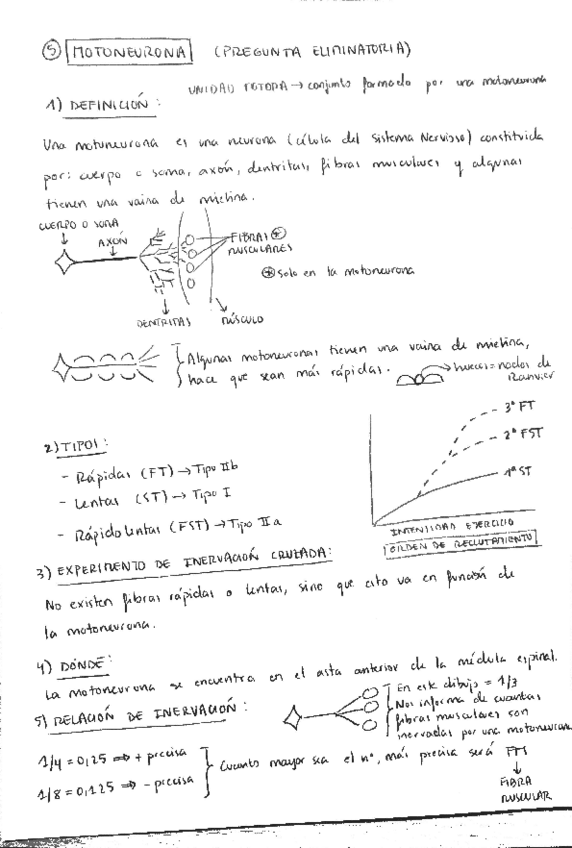 ⑤ MOTONEURONA (PREGUNTA ELIMINATORIA)
UNIDAD MOTORA → conjunto formado por una motoneurona
1) DEFINICIÓN:
Una motoneurona es una neurona (célula del Sistema Nervioso) constituida
por: cuerpo o soma, axón, dentritas, fibras musculares y algunas
tienen una vaina de mielina.
CUERPO O SOMA
AXÓN
FIBRAS ⊛
MUSCULARES
⊛ Solo en la motoneurona
DENTRITAS
MÚSCULO
Algunas motoneuronas tienen una vaina de mielina,
hace que sean más rápidas.
huecos = nodos de
Ranvier
2) TIPOS:
- Rápidas (FT) → Tipo IIb
- Lentas (ST) → Tipo I
- Rápido lentas (FST) → Tipo IIa
3º FT
2º FST
1º ST
INTENSIDAD EJERCICIO
ORDEN DE RECLUTAMIENTO
3) EXPERIMENTO DE INERVACIÓN CRUZADA:
No existen fibras rápidas o lentas, sino que esto va en función de
la motoneurona.
4) DÓNDE:
La motoneurona se encuentra en el asta anterior de la médula espinal.
5) RELACIÓN DE INERVACIÓN:
En este dibujo = 1/3
Nos informa de cuantas
fibras musculares son
inervadas por una motoneurona
1/4 = 0,25 ⇒ + precisa
1/8 = 0,125 ⇒ - precisa
Cuanto mayor sea el nº, más precisa será
FIBRA
MUSCULAR